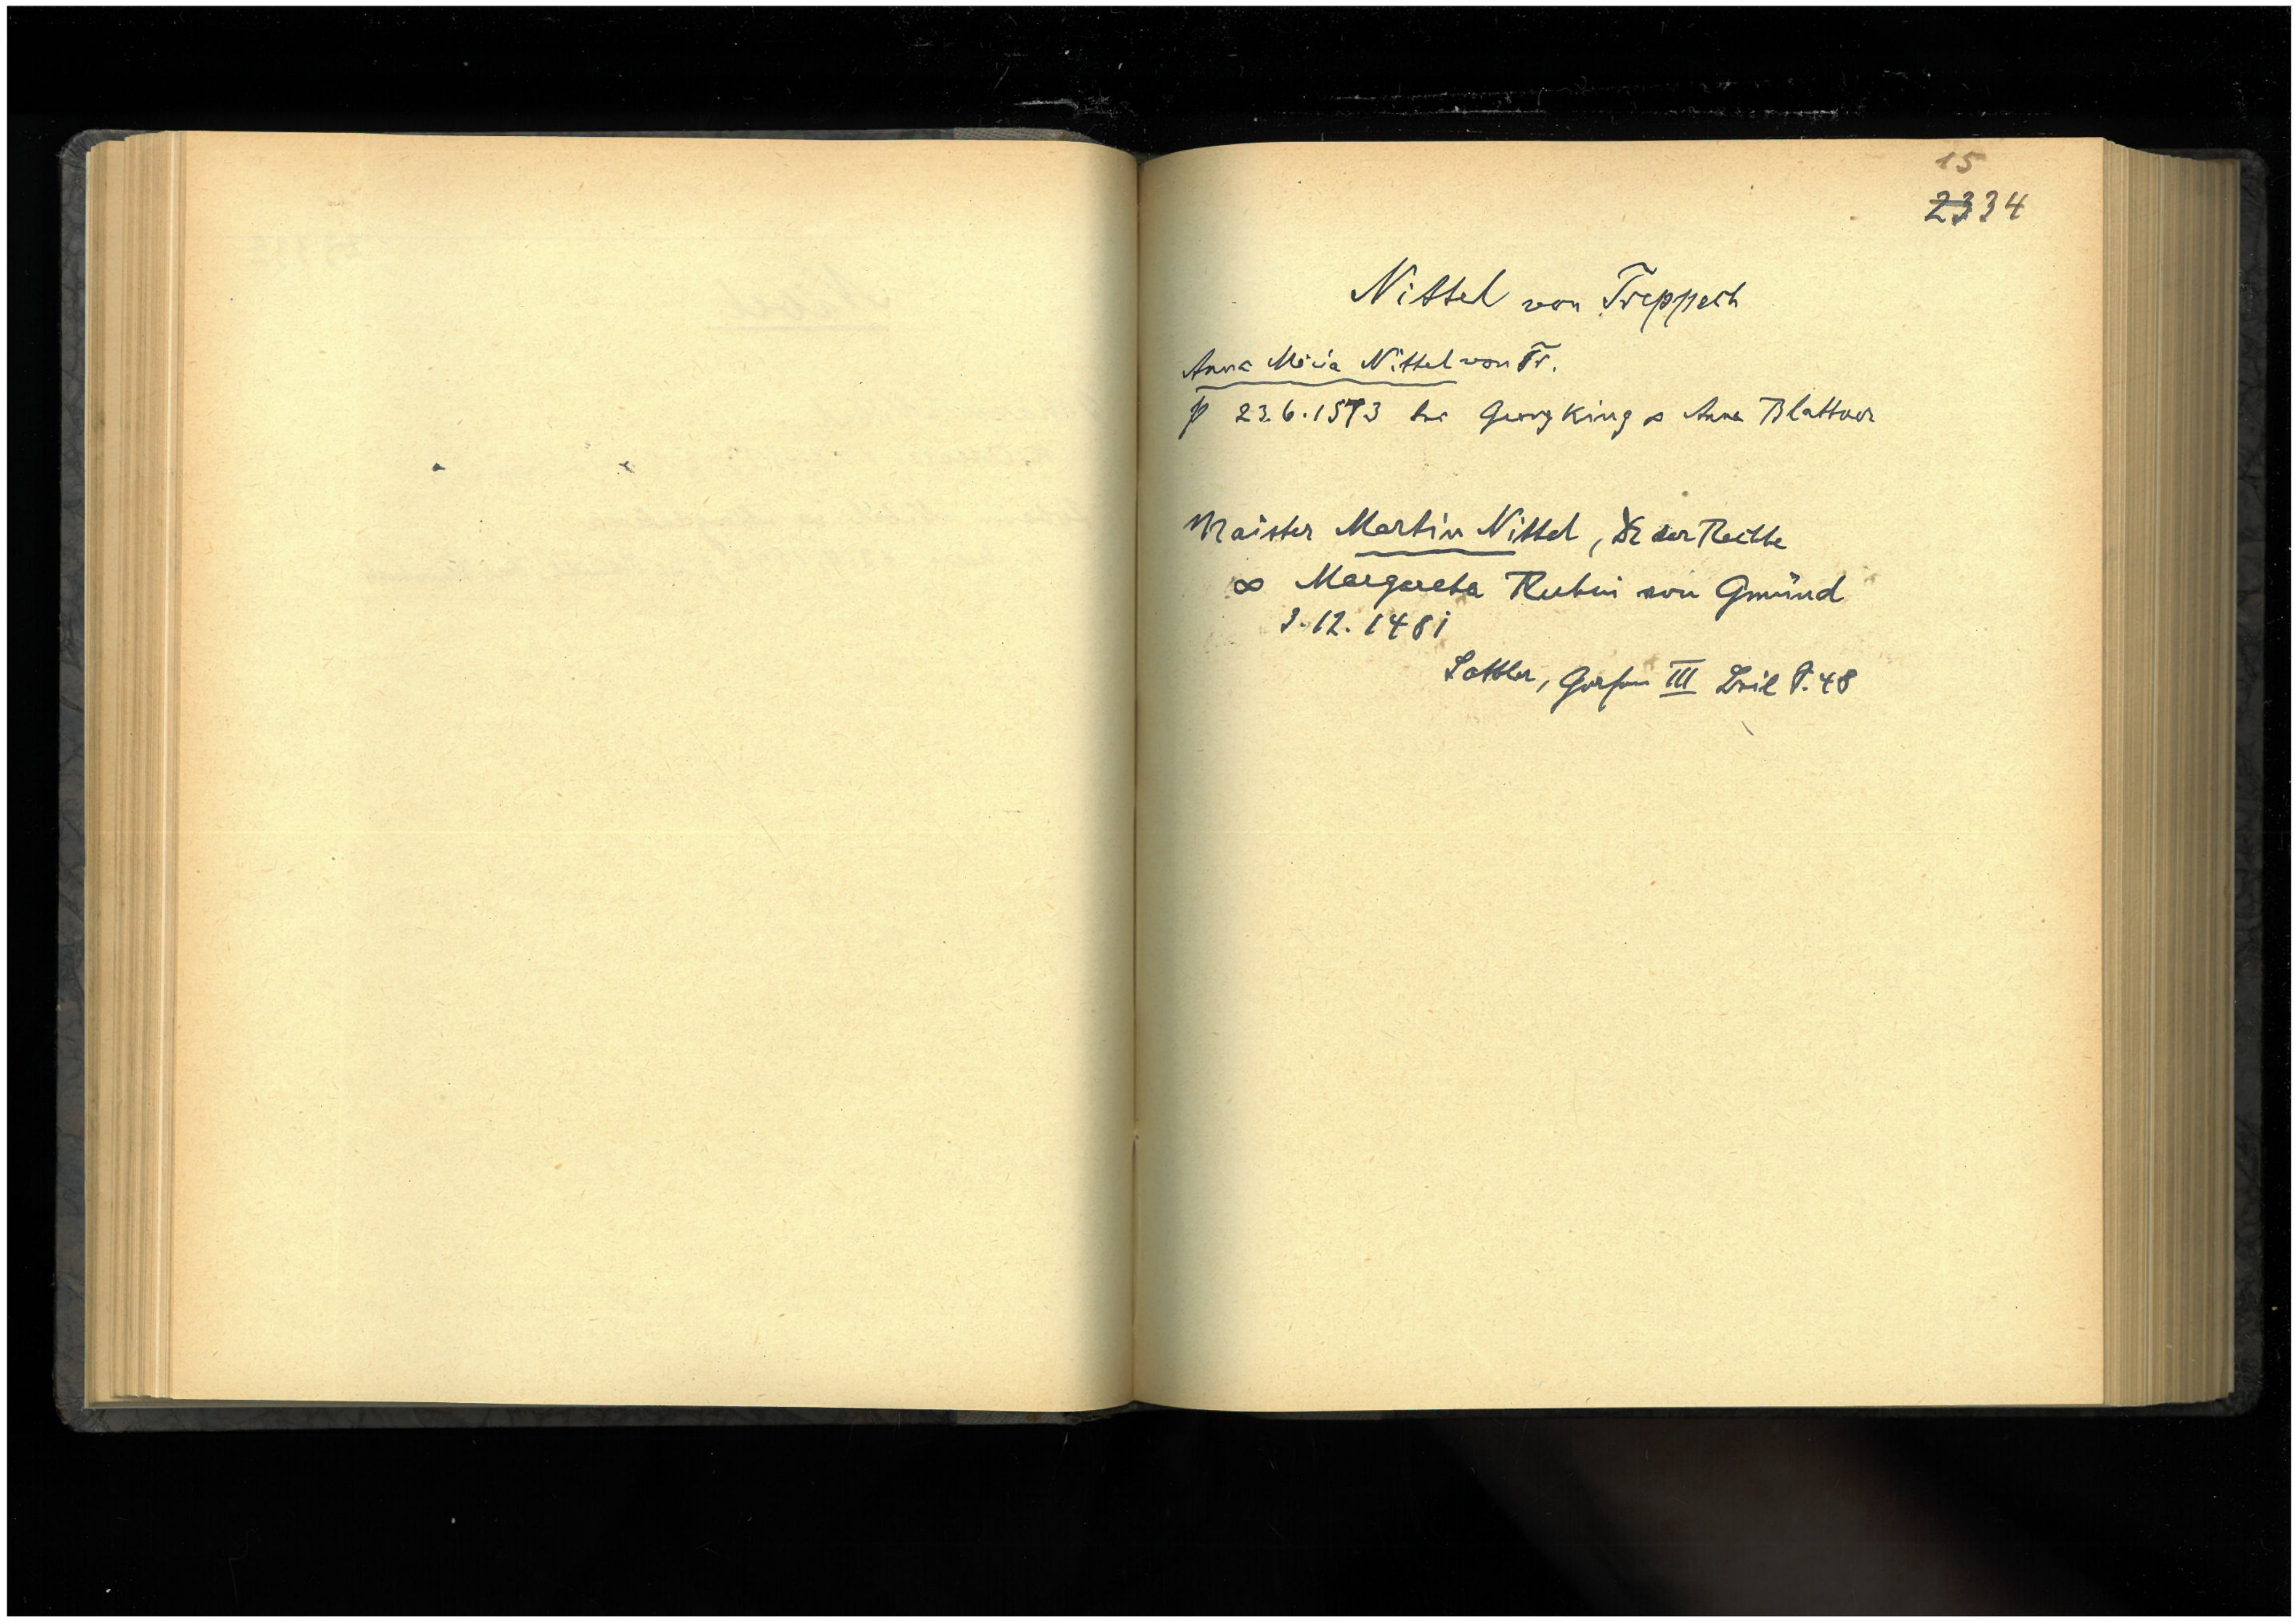 15
2334
Nittel von Treppach
Anna Maria Nittel von Tr.
23.6.1573 bei Georg King ∞ Anna Blattner
Maister Martin Nittel, Dr der Rechte
∞ Margareta Rubin von Gmünd
3.12.1481
Sattler, Grafen III Teil S. 48